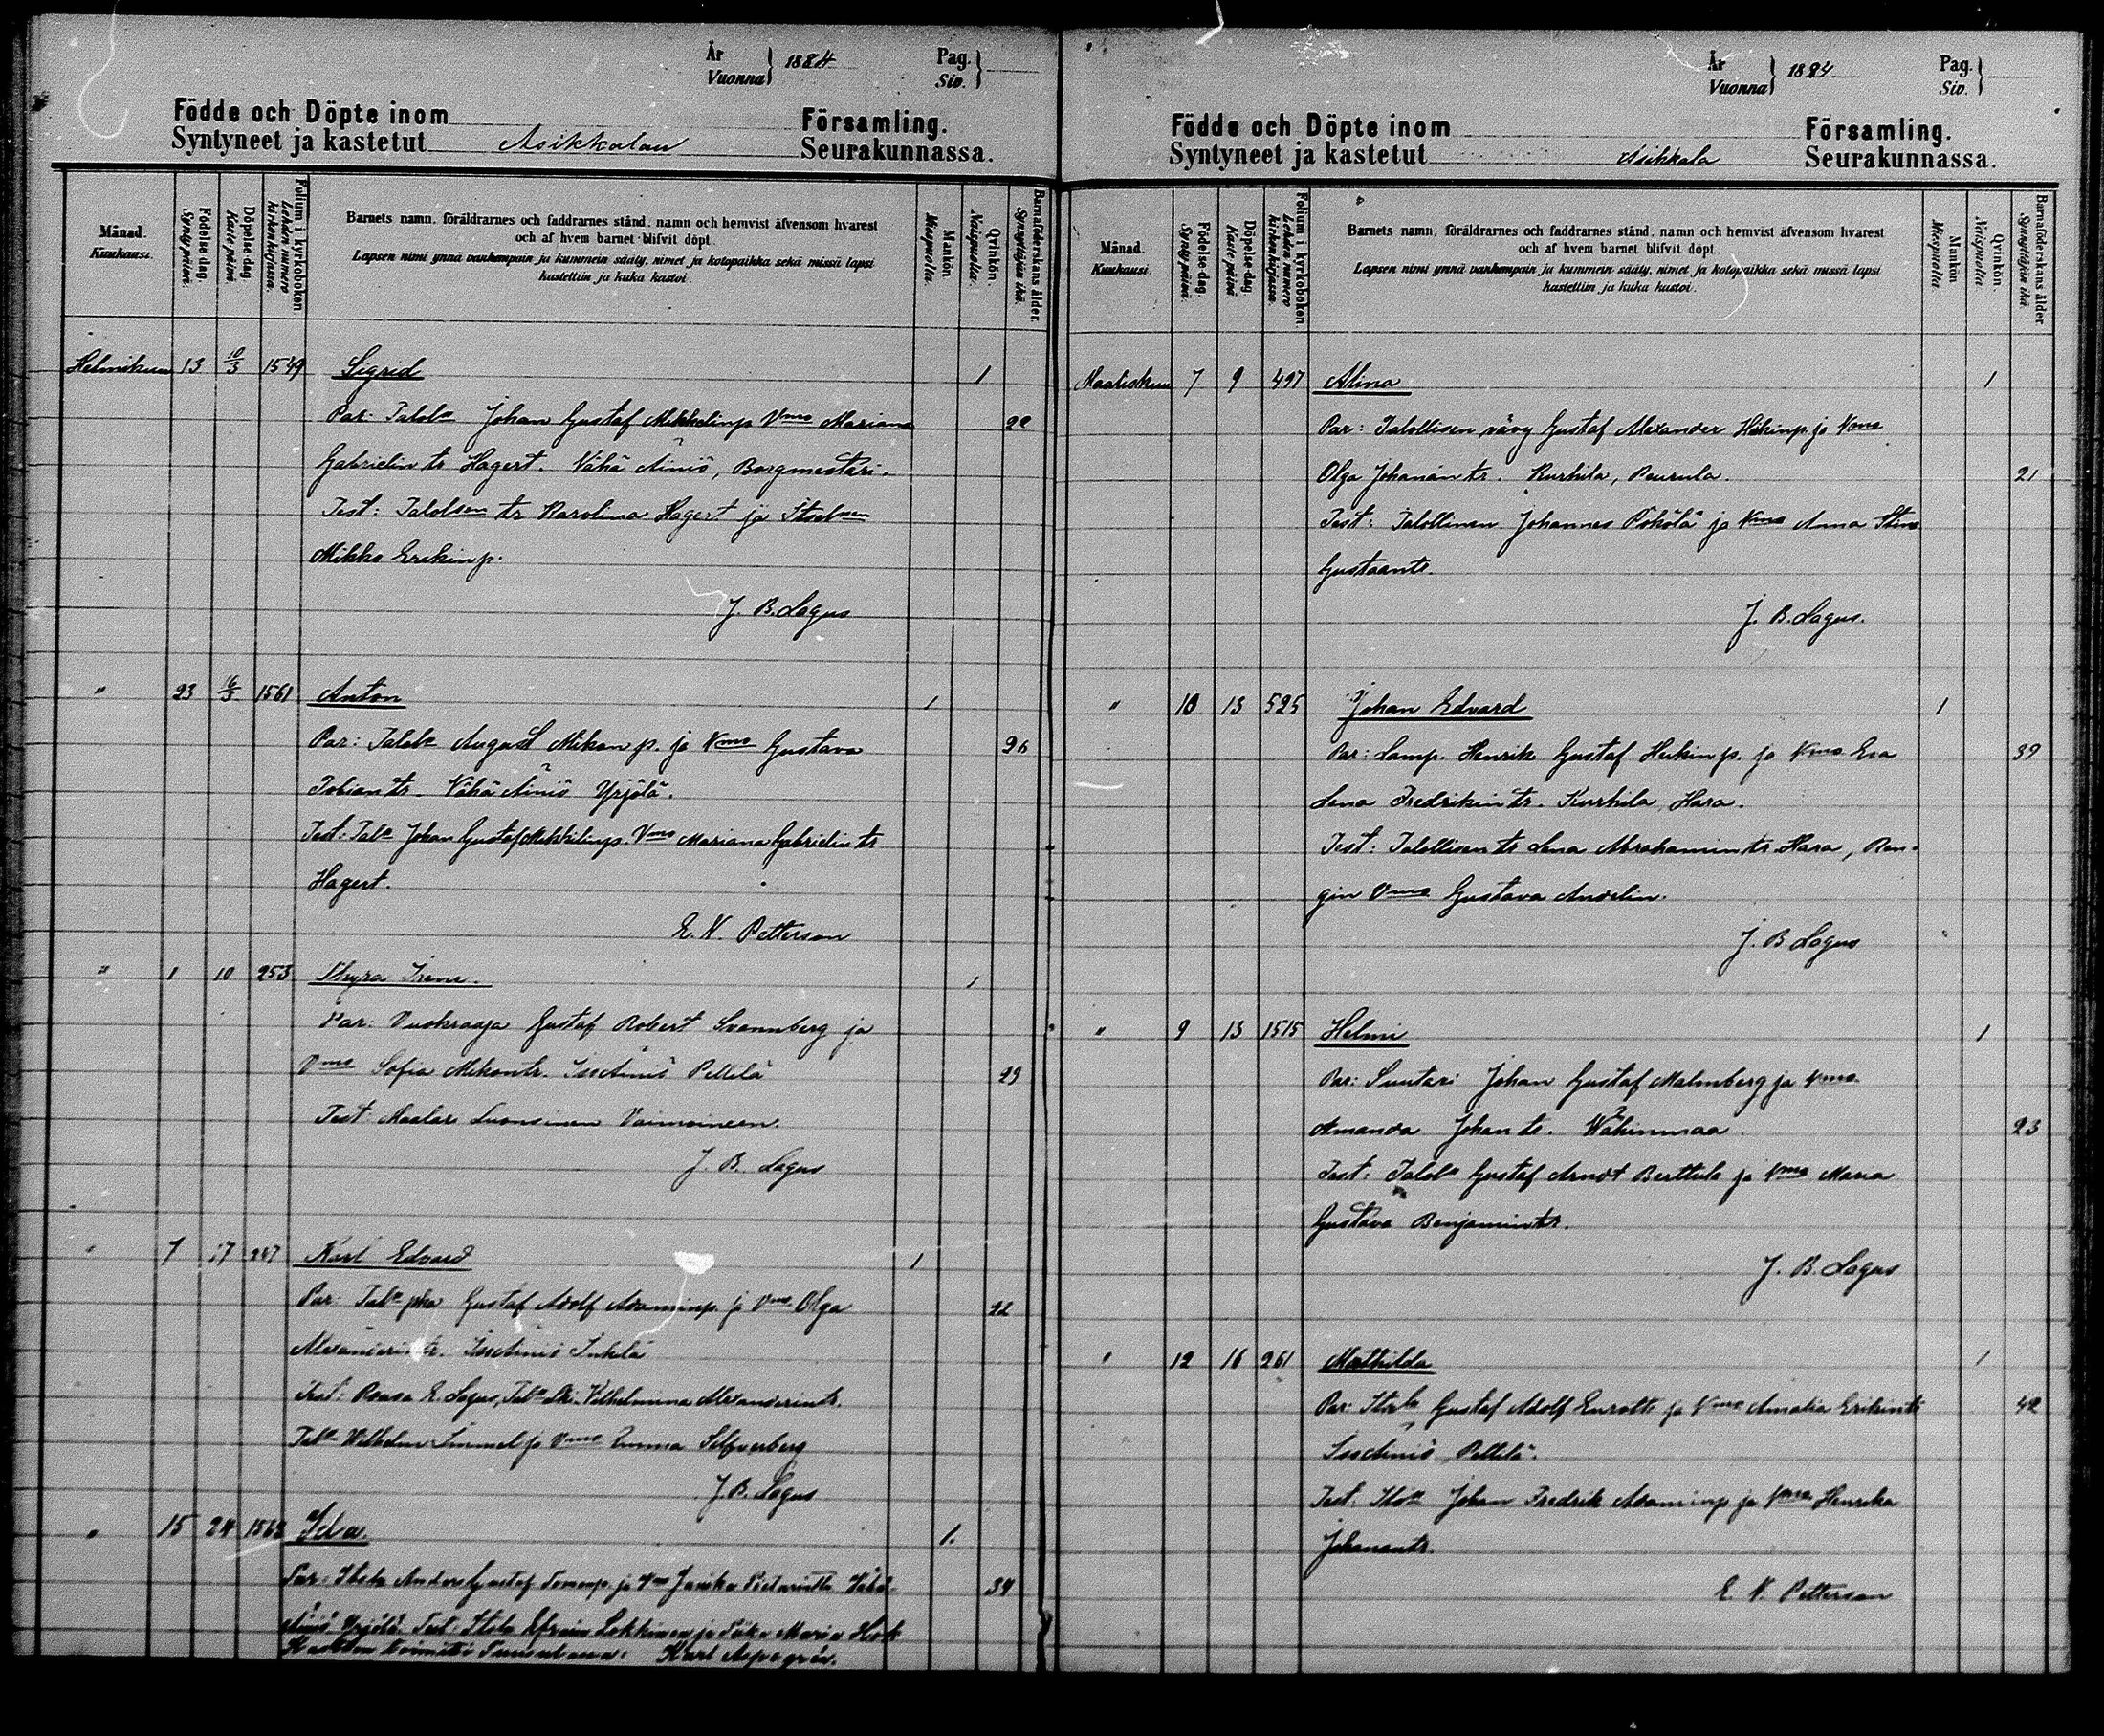 År
Vuonna } 1884 Pag.
Siv. }
Födde och Döpte inom Församling.
Syntyneet ja kastetut Asikkalan Seurakunnassa.
Månad.
Kuukausi.
Födelse-dag.
Synty päivä.
Döpelse-dag.
Kaste päivä.
Folium i kyrkoboken
Lehden numero
kirkonkirjassa.
Barnets namn, föräldrarnes och faddrarnes stånd, namn och hemvist äfvensom hvarest
och af hvem barnet blifvit döpt.
Lapsen nimi ynnä vanhempain ja kummein sääty, nimet ja kotopaikka sekä missä lapsi
kastettiin ja kuka kastoi.
Mankön.
Miespuolia.
Qvinkön.
Naispuolia.
Barnaföderskans ålder.
Synnyttäjän ikä.
Helmikuu 13 10/3 1549 Sigrid 1
Par: Talol:n Johan Gustaf Mikkelinp. Vmo Mariana 22
Gabrielin tr Hagert. Vähä Äiniö, Borgmestari.
Test: Talolsen tr Karolina Hagert ja Itsel:nen
Mikko Erikinp.
J. B. Lagus
" 23 16/3 1561 Anton 1
Par: Talol:n August Mikon p. ja Vmo Gustava 26
Tobian tr. Vähä Äiniö Yrjölä.
Test: Tal:n Johan Gustaf Mikkelinp. Vmo Mariana Gabrielin tr
Hagert.
E. N. Petterson
" 1 10 253 Thyra Irene. 1
Par: Vuokraaja Gustaf Robert Svannberg ja
Vmo Sofia Mikontr. Iso Äiniö Pellilä 29
Test: Maalar Luonsinen Vaimoineen.
J. B. Lagus
" 7 17 247 Karl Edvard 1
Par: Tal:n pka Gustaf Adolf Adaminp. ja Vmo Olga 22
Alexanderin tr. Iso Äiniö Inkilä
Test: Rouva E. Lagus, Tal:n Vilhelmina Alexanderintr.
Tal:n Wilhelm ja Vmo Emma Silfverberg
J. B. Lagus
" 15 24 1562 Ida. 1.
Par: Itseln Anders Gustaf ja Vmo Pietarintr Vähä- 34
Äiniö Yrjölä. Test: Itseln Efraim Lokkinen ja Piika Maria Hök
Kasteen toimitti Karl Aspegrén.
År
Vuonna } 1884 Pag.
Siv. }
Födde och Döpte inom Församling.
Syntyneet ja kastetut Asikkala Seurakunnassa.
Månad.
Kuukausi.
Födelse-dag.
Synty päivä.
Döpelse-dag.
Kaste päivä.
Folium i kyrkoboken
Lehden numero
kirkonkirjassa.
Barnets namn, föräldrarnes och faddrarnes stånd, namn och hemvist äfvensom hvarest
och af hvem barnet blifvit döpt.
Lapsen nimi ynnä vanhempain ja kummein sääty, nimet ja kotopaikka sekä missä lapsi
kastettiin ja kuka kastoi.
Mankön
Miespuolia
Qvinkön.
Naispuolia
Barnaföderskans ålder
Synnyttäjän ikä
Maaliskuu 7 9 497 Alina 1
Par: Talollisen vävy Gustaf Alexander Heikinp. ja Vmo
Olga Johanan tr. Kurhila, Paurula. 21
Test: Talollinen Johannes Pökölä ja Vmo Anna Stina
Gustaantr.
J. B. Lagus.
" 10 13 525 Johan Edvard 1
Par: Lamp. Henrik Gustaf Heikin p. ja Vmo Eva 39
Lena Fredrikin tr. Kurhila, Hara.
Test: Talollisen tr Lena Abrahamin tr Hara, Ren-
gin Vmo Gustava Andelin.
J. B Lagus
" 9 13 1515 Helmi 1
Par: Suutari Johan Gustaf Malmberg ja Vmo
Amanda Johan tr. Wähimmaa 23
Test: Talol:n Gustaf Arndt Berttula ja Vmo Maria
Gustava Benjamintr.
J. B. Lagus
" 12 16 261 Mathilda 1
Par: Itseln Gustaf Adolf Eurotti ja Vmo Amalia Erikintr 42
Iso Äiniö, Pellilä.
Test: Johan Fredrik Adaminp. ja Vmo Henrika
Johanantr.
E. N. Petterson